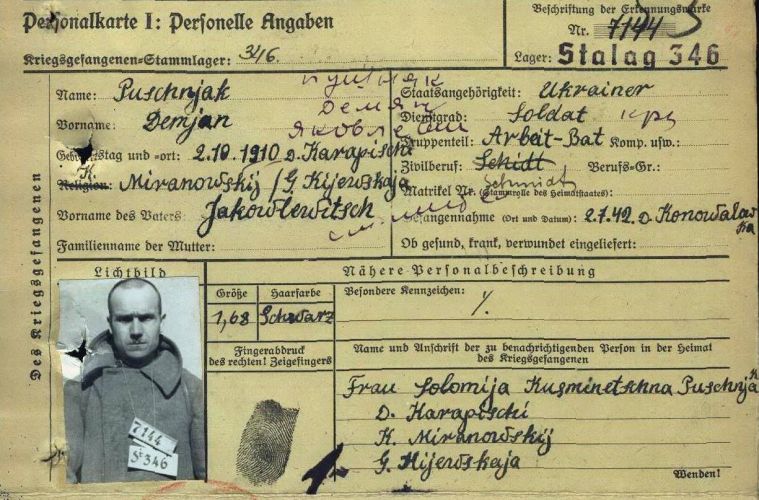 Personalkarte I: Personelle Angaben
Beschriftung der Erkennungsmarke
Nr. 7144
Kriegsgefangenen-Stammlager: 346.
Lager: Stalag 346
Des Kriegsgefangenen
Name: Puschnjak
Пушняк
Staatsangehörigkeit: Ukrainer
Vorname: Demjan
Демян
Dienstgrad: Soldat
Яковлевич
Truppenteil: Arbeit-Bat Komp. usw.:
Geburtstag und -ort: 2.10.1910 D. Karapischi
Zivilberuf: Schidt Berufs-Gr.:
K. Religion: Miranowskij / G. Kijewskaja
Matrikel Nr. (Stammrolle des Heimatstaates):
Schmidt
Vorname des Vaters: Jakowlewitsch
Gefangennahme (Ort und Datum): 2.7.42. D. Konowalowka
Familienname der Mutter:
Ob gesund, krank, verwundet eingeliefert:
Lichtbild
Nähere Personalbeschreibung
Größe
Haarfarbe
Besondere Kennzeichen:
1,68
Schwarz
Fingerabdruck
des rechten! Zeigefingers
Name und Anschrift der zu benachrichtigenden Person in der Heimat
des Kriegsgefangenen
Frau Solomija Kusminetschna Puschnjak
D. Karapischi
K. Miranowskij
G. Kijewskaja
7144
St 346
Wenden!